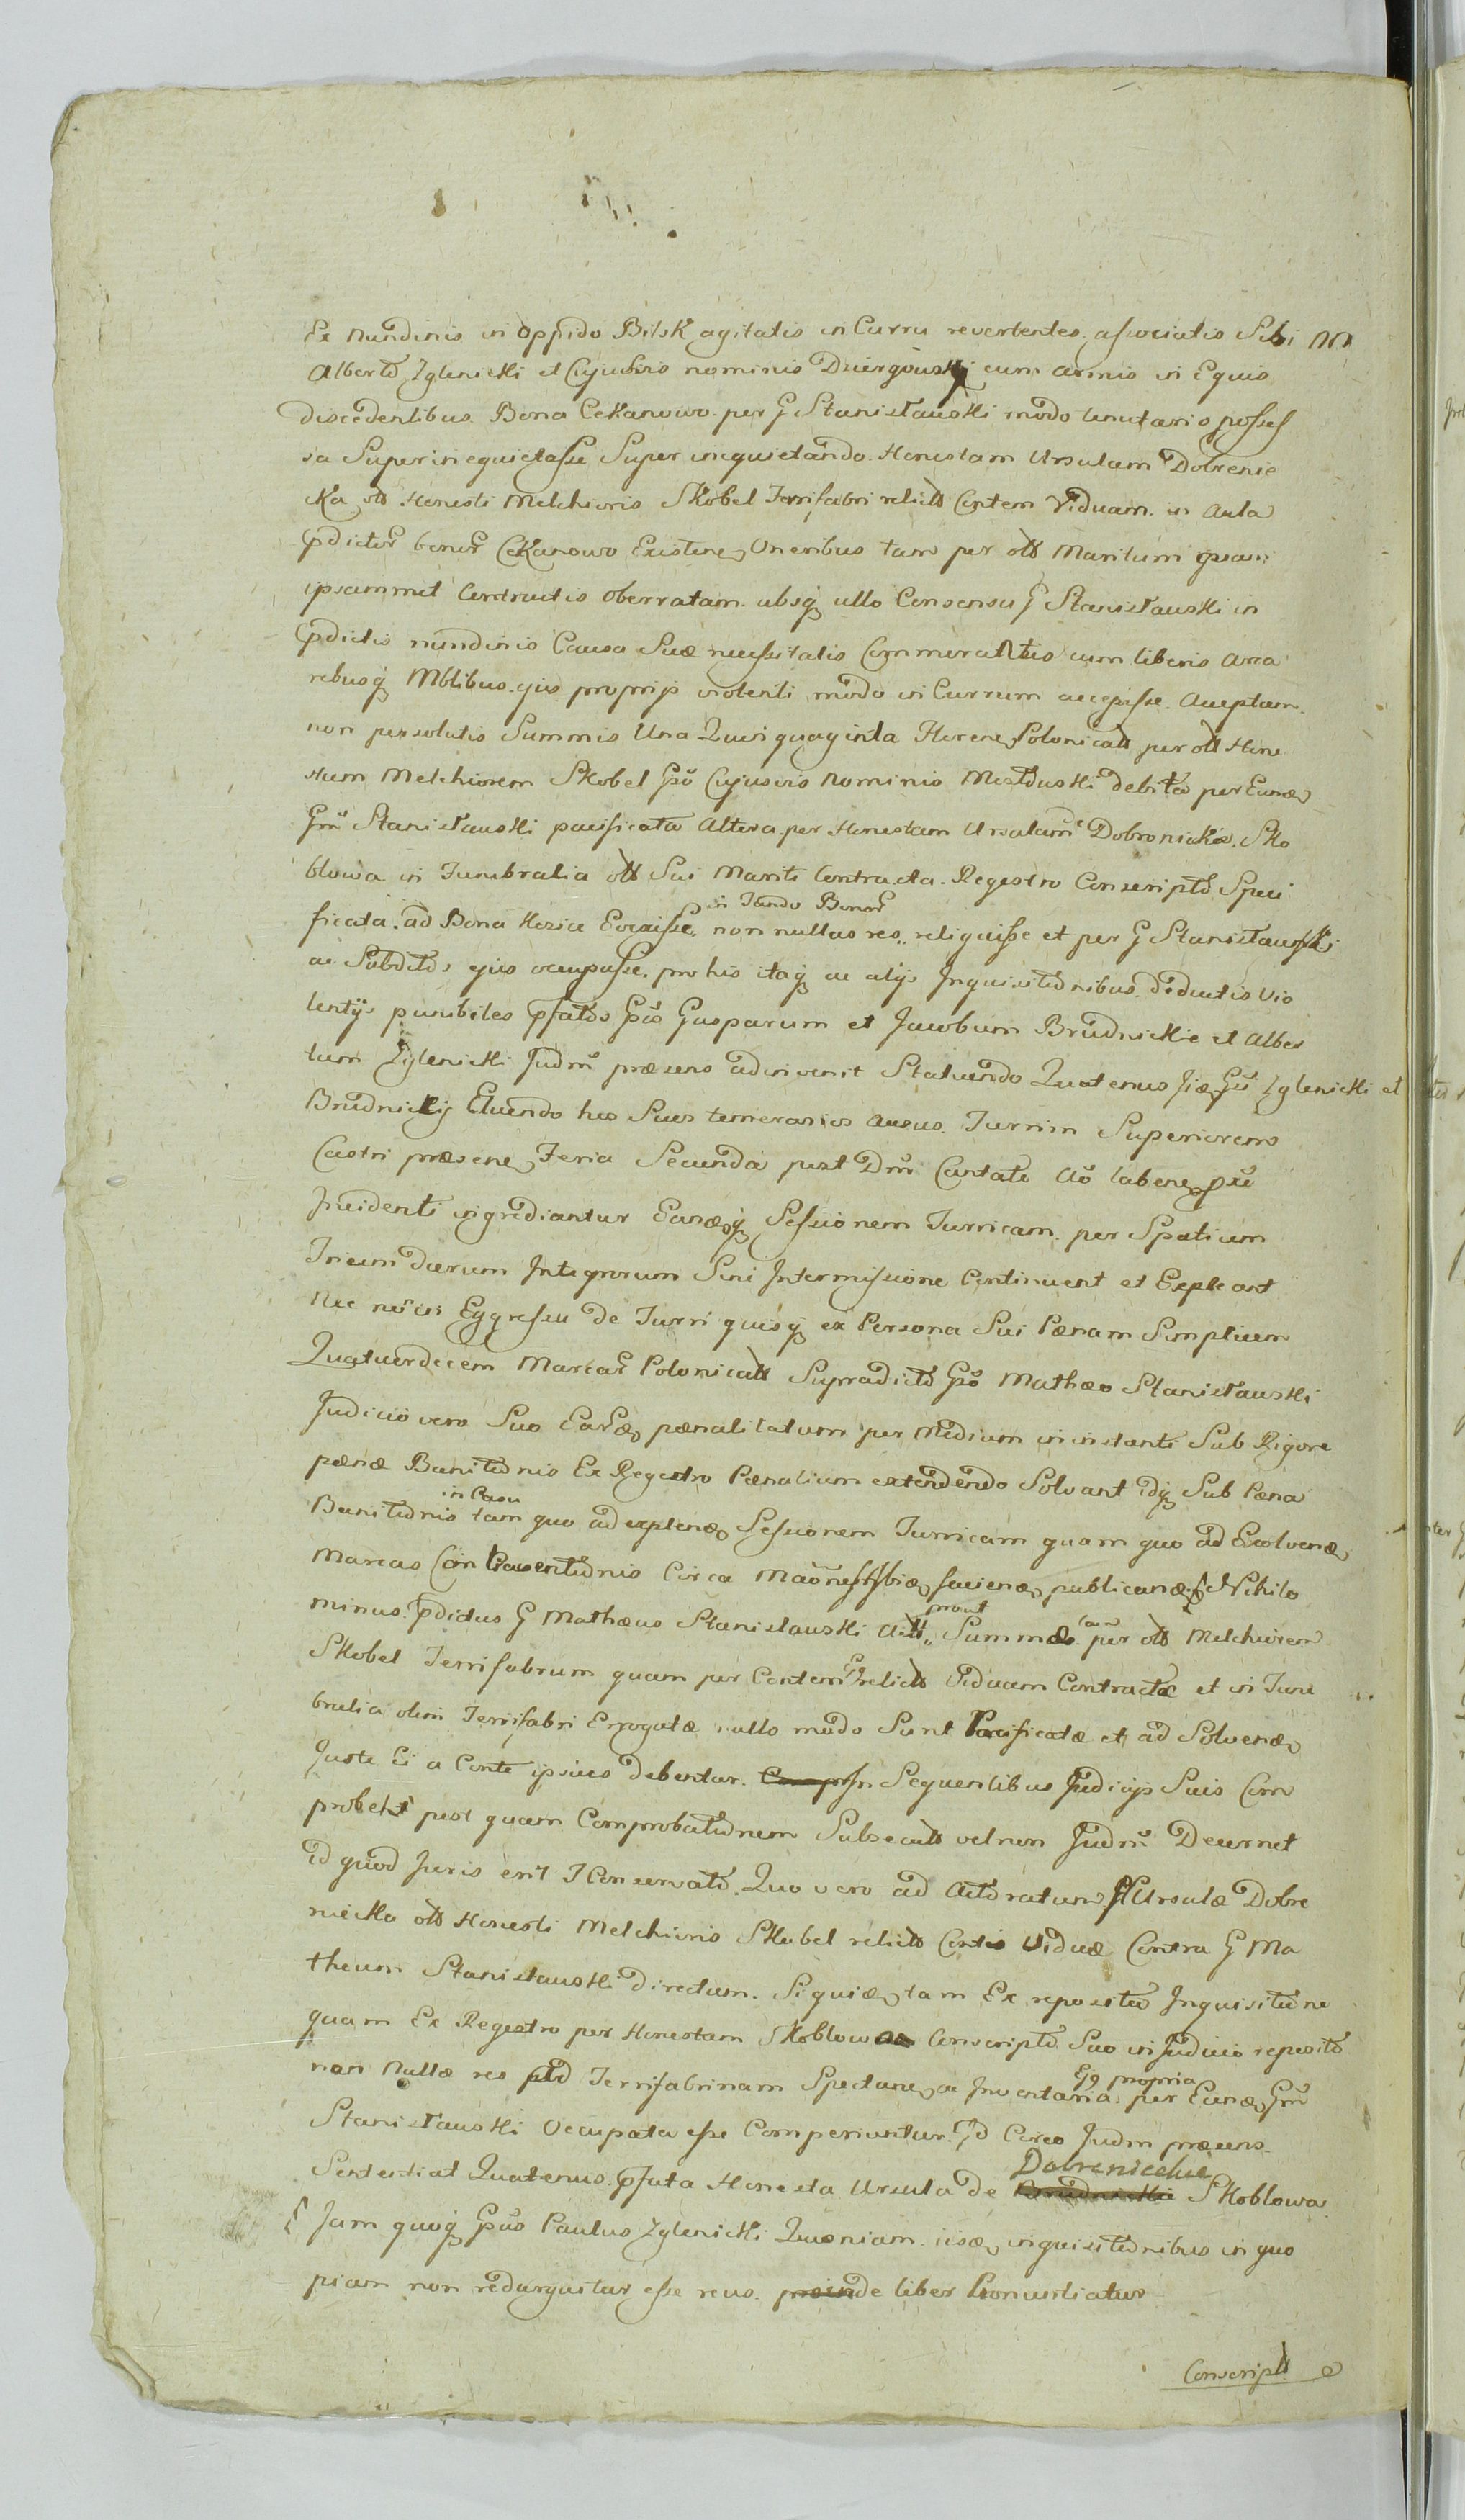 Ex Nundinis in Oppido Bilsk agitatis in Curru revertentes, associatis Sibi NN
Alberto Zglenicki et Cujusvis nominis Dziergowski cum armis in Equis
discedentibus Bona Cekanowo per G Stanisławski modo tenutario posses
sa Superinequietasse Super inequietando Honestam Ursulam Dobrenic
ka olt Honesti Melchioris Skobel Ferrifabri relict Contem Viduam in Aula
pdictor bonor Cekanowo Existen Oneribus tam per olt Maritum quam
ipsammet Contractis oberratam absq ullo Consensu G Stanisławski in
pdictis nundinis Causa Suæ necessitatis Commorantis cum liberis arca
rebusq Mblibus ejus proprijs violenti modo in Currum accepisse. Acceptam
non persolutis Summis Una Quinquaginta Floren Polonicalt per olt Hone
stum Melchiorem Skobel Gso Cujusvis Nominis Mieszduski debita per Eund
Gm Stanisławski pacificata Altera per Honestam Ursulam Dobronickie Sko
blowa in Funebralia olt Sui Mariti Contracta Regestro Conscripto Speci
in Fundo Bonor
ficata ad Bona Evexisse, non nullas res,, reliquisse et per G Stanisławski
ac Subditos ejus occupasse, pro his itaq ac alijs Inquisitionibus deductis Vio
lentijs punibiles pfatos Gsos Gasparum et Jacobum Brudnickie et Alber
tum Zglenicki Judm præsens adinvenit Statuendo Quatenus Zglenicki et
Brudnickij Eluendo hos Suos temerarios ausus Turrim Superiorem
Castri præsen Feria Secunda post Dm Cantate Ao laben
Incidenti ingrediantur Eandq Sessionem Turricam per Spatium
Trium dierum Integrorum Sini Intermissione Continuent et Expleant
Nec no in Eggressu de Turri quisq ex Persona Sui Pænam Simplicem
Quatuordecem Marcar Polonicalt Supradicto Gso Mathæo Stanisławski
Judicio vero Suo pænalitatum per Medium in instanti Sub Rigore
pænæ Banitionis Ex Regestro Pænalium extendendo Solvant idq Sub Pæna
in Casu
Banitionis tam quo ad explend Sessionem Turricam quam quo ad Exolvend
Marcas Contraventionis Circa faciend publicand Nihilo
prout tam
minus pdictus G Mathæus Stanisławski Act,, Summæ per olt Melchiorem
Skobel Ferrifabrum quam per Contem relict Viduam Contractæ et in Fune
bralia olim Ferrifabri Errogatæ nullo modo Sunt Pacificatæ et ad Solvend
Juste Ei a Conte ipsius debentur. In Sequentibus Judicijs Suis Com
probet post quam Comprobationem Subsecut vel non Judm Decernet
id quod Juris erit Conservato. Quo vero ad Actoratum Ursulæ Dobre
nicka olt Honesti Melchioris Skobel relict Contis Viduæ Contra G Ma
theum Stanisławski directum. Siquid tam Ex reposita Inquisitione
quam Ex Regestro per Honestam Skoblowa Conscripto Suo in Judicio reposito
Ejq propria
non Nullæ res ad Ferrifabrinam Spectan a Inventaria per Eund Gm
Stanisławski Occupata esse Comperiuntur. Id Circo Judm præsens
Dobrenickie
Sententiat Quatenus pfata Honesta Ursula de Brudnickie Skoblowa
Jam quoq Gsus Paulus Zglenicki Quoniam iisd inquisitionibus in quo
piam non redarguitur esse reus, proinde liber Pronuntiatur
Conscript